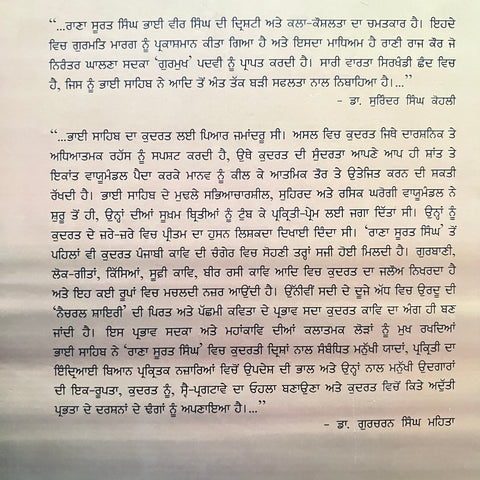 “...ਰਾਣਾ ਸੂਰਤ ਸਿੰਘ ਭਾਈ ਵੀਰ ਸਿੰਘ ਦੀ ਦ੍ਰਿਸ਼ਟੀ ਅਤੇ ਕਲਾ-ਕੌਸ਼ਲਤਾ ਦਾ ਚਮਤਕਾਰ ਹੈ। ਇਹਦੇ
ਵਿਚ ਗੁਰਮਤਿ ਮਾਰਗ ਨੂੰ ਪ੍ਰਕਾਸ਼ਮਾਨ ਕੀਤਾ ਗਿਆ ਹੈ ਅਤੇ ਇਸਦਾ ਮਾਧਿਅਮ ਹੈ ਰਾਣੀ ਰਾਜ ਕੌਰ ਜੋ
ਨਿਰੰਤਰ ਘਾਲਣਾ ਸਦਕਾ ‘ਗੁਰਮੁਖ’ ਪਦਵੀ ਨੂੰ ਪ੍ਰਾਪਤ ਕਰਦੀ ਹੈ। ਸਾਰੀ ਵਾਰਤਾ ਸਿਰਖੰਡੀ ਛੰਦ ਵਿਚ
ਹੈ, ਜਿਸ ਨੂੰ ਭਾਈ ਸਾਹਿਬ ਨੇ ਆਦਿ ਤੋਂ ਅੰਤ ਤੱਕ ਬੜੀ ਸਫਲਤਾ ਨਾਲ ਨਿਬਾਹਿਆ ਹੈ।...”
- ਡਾ. ਸੁਰਿੰਦਰ ਸਿੰਘ ਕੋਹਲੀ
“...ਭਾਈ ਸਾਹਿਬ ਦਾ ਕੁਦਰਤ ਲਈ ਪਿਆਰ ਜਮਾਂਦਰੂ ਸੀ। ਅਸਲ ਵਿਚ ਕੁਦਰਤ ਜਿਥੇ ਦਾਰਸ਼ਨਿਕ ਤੇ
ਅਧਿਆਤਮਕ ਰਹੱਸ ਨੂੰ ਸਪਸ਼ਟ ਕਰਦੀ ਹੈ, ਉਥੇ ਕੁਦਰਤ ਦੀ ਸੁੰਦਰਤਾ ਆਪਣੇ ਆਪ ਹੀ ਸ਼ਾਂਤ ਤੇ
ਇਕਾਂਤ ਵਾਯੂਮੰਡਲ ਪੈਦਾ ਕਰਕੇ ਮਾਨਵ ਨੂੰ ਕੀਲ ਕੇ ਆਤਮਿਕ ਤੌਰ ਤੇ ਉਤੇਜਿਤ ਕਰਨ ਦੀ ਸ਼ਕਤੀ
ਰੱਖਦੀ ਹੈ। ਭਾਈ ਸਾਹਿਬ ਦੇ ਮੁਢਲੇ ਸਭਿਆਚਾਰਸ਼ੀਲ, ਸੁਹਿਰਦ ਅਤੇ ਰਸਿਕ ਘਰੋਗੀ ਵਾਯੂਮੰਡਲ ਨੇ
ਸ਼ੁਰੂ ਤੋਂ ਹੀ, ਉਨ੍ਹਾਂ ਦੀਆਂ ਸੂਖਮ ਬ੍ਰਿਤੀਆਂ ਨੂੰ ਟੁੰਬ ਕੇ ਪ੍ਰਕ੍ਰਿਤੀ-ਪ੍ਰੇਮ ਲਈ ਜਗਾ ਦਿੱਤਾ ਸੀ। ਉਨ੍ਹਾਂ ਨੂੰ
ਕੁਦਰਤ ਦੇ ਜ਼ਰੇ-ਜ਼ਰੇ ਵਿਚ ਪ੍ਰੀਤਮ ਦਾ ਹੁਸਨ ਲਿਸ਼ਕਦਾ ਦਿਖਾਈ ਦਿੰਦਾ ਸੀ। ‘ਰਾਣਾ ਸੂਰਤ ਸਿੰਘ’ ਤੋਂ
ਪਹਿਲਾਂ ਵੀ ਕੁਦਰਤ ਪੰਜਾਬੀ ਕਾਵਿ ਦੀ ਚੰਗੇਰ ਵਿਚ ਸੋਹਣੀ ਤਰ੍ਹਾਂ ਸਜੀ ਹੋਈ ਮਿਲਦੀ ਹੈ। ਗੁਰਬਾਣੀ,
ਲੋਕ-ਗੀਤਾਂ, ਕਿੱਸਿਆਂ, ਸੂਫ਼ੀ ਕਾਵਿ, ਬੀਰ ਰਸੀ ਕਾਵਿ ਆਦਿ ਵਿਚ ਕੁਦਰਤ ਦਾ ਜਲੌਅ ਨਿਖਰਦਾ ਹੈ
ਅਤੇ ਇਹ ਕਈ ਰੂਪਾਂ ਵਿਚ ਮਚਲਦੀ ਨਜ਼ਰ ਆਉਂਦੀ ਹੈ। ਉੱਨੀਵੀਂ ਸਦੀ ਦੇ ਦੂਜੇ ਅੱਧ ਵਿਚ ਉਰਦੂ ਦੀ
‘ਨੈਚਰਲ ਸ਼ਾਇਰੀ’ ਦੀ ਪਿਰਤ ਅਤੇ ਪੱਛਮੀ ਕਵਿਤਾ ਦੇ ਪ੍ਰਭਾਵ ਸਦਾ ਕੁਦਰਤ ਕਾਵਿ ਦਾ ਅੰਗ ਹੀ ਬਣ
ਜਾਂਦੀ ਹੈ। ਇਸ ਪ੍ਰਭਾਵ ਸਦਕਾ ਅਤੇ ਮਹਾਂਕਾਵਿ ਦੀਆਂ ਕਲਾਤਮਕ ਲੋੜਾਂ ਨੂੰ ਮੁਖ ਰਖਦਿਆਂ
ਭਾਈ ਸਾਹਿਬ ਨੇ ‘ਰਾਣਾ ਸੂਰਤ ਸਿੰਘ’ ਵਿਚ ਕੁਦਰਤੀ ਦ੍ਰਿਸ਼ਾਂ ਨਾਲ ਸੰਬੰਧਿਤ ਮਨੁੱਖੀ ਯਾਦਾਂ, ਪ੍ਰਕ੍ਰਿਤੀ ਦਾ
ਇੰਦ੍ਰਿਆਈ ਬਿਆਨ ਪ੍ਰਕ੍ਰਿਤਕ ਨਜ਼ਾਰਿਆਂ ਵਿਚੋਂ ਉਪਦੇਸ਼ ਦੀ ਭਾਲ ਅਤੇ ਉਨ੍ਹਾਂ ਨਾਲ ਮਨੁੱਖੀ ਉਦਗਾਰਾਂ
ਦੀ ਇਕ-ਰੂਪਤਾ, ਕੁਦਰਤ ਨੂੰ, ਸ੍ਵੈ-ਪ੍ਰਗਟਾਵੇ ਦਾ ਓਹਲਾ ਬਣਾਉਣਾ ਅਤੇ ਕੁਦਰਤ ਵਿਚੋਂ ਕਿਤੇ ਅਦੁੱਤੀ
ਪ੍ਰਭਤਾ ਦੇ ਦਰਸ਼ਨਾਂ ਦੇ ਢੰਗਾਂ ਨੂੰ ਅਪਣਾਇਆ ਹੈ।...”
- ਡਾ. ਗੁਰਚਰਨ ਸਿੰਘ ਮਹਿਤਾ